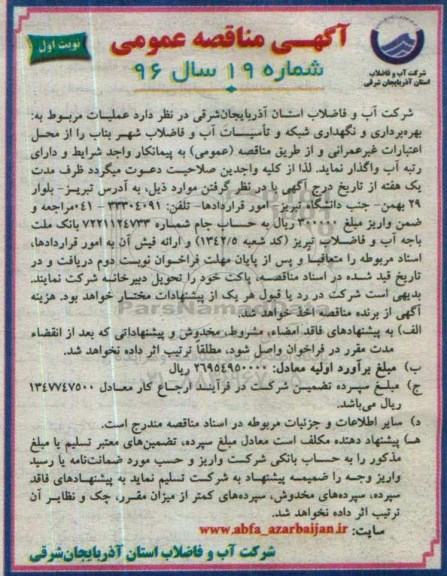 شرکت آب و فاضلاب
استان آذربایجان شرقی
آگهی مناقصه عمومی
نوبت اول
شماره ۱۹ سال ۹۶
شرکت آب و فاضلاب استان آذربایجان‌شرقی در نظر دارد عملیات مربوط به:
بهره‌برداری و نگهداری شبکه و تأسیسات آب و فاضلاب شهر بناب را از محل
اعتبارات غیرعمرانی و از طریق مناقصه (عمومی) به پیمانکار واجد شرایط و دارای
رتبه آب واگذار نماید. لذا از کلیه واجدین صلاحیت دعوت میگردد ظرف مدت
یک هفته از تاریخ درج آگهی با در نظر گرفتن موارد ذیل، به آدرس تبریز- بلوار
۲۹ بهمن- جنب دانشگاه تبریز- امور قراردادها- تلفن: ۳۳۳۰۴۰۹۱-۰۴۱ مراجعه و
ضمن واریز مبلغ ۳۰۰۰۰۰ ریال به حساب جام شماره ۷۲۲۱۱۲۴۷۳۳ بانک ملت
باجه آب و فاضلاب تبریز (کد شعبه ۱۳۴۲/۵) و ارائه فیش آن به امور قراردادها،
اسناد مربوطه را متعاقبا و پس از پایان مهلت فراخوان نوبت دوم دریافت و در
تاریخ قید شده در اسناد مناقصه، پاکت خود را تحویل دبیرخانه شرکت نمایند.
بدیهی است شرکت در رد یا قبول هر یک از پیشنهادات مختار خواهد بود. هزینه
آگهی از برنده مناقصه اخذ خواهد شد.
الف) به پیشنهادهای فاقد امضاء، مشروط، مخدوش و پیشنهاداتی که بعد از انقضاء
مدت مقرر در فراخوان واصل شود، مطلقاً ترتیب اثر داده نخواهد شد.
ب) مبلغ برآورد اولیه معادل: ۲۶۹۵۴۹۵۰۰۰۰ ریال
ج) مبلغ سپرده تضمین شرکت در فرآیند ارجاع کار معادل ۱۳۴۷۷۴۷۵۰۰
ریال می‌باشد.
د) سایر اطلاعات و جزئیات مربوطه در اسناد مناقصه مندرج است.
هـ) پیشنهاد دهنده مکلف است معادل مبلغ سپرده، تضمین‌های معتبر تسلیم یا مبلغ
مذکور را به حساب بانکی شرکت واریز و حسب مورد ضمانت‌نامه یا رسید
واریز وجه را ضمیمه پیشنهاد به شرکت تسلیم نماید به پیشنهادهای فاقد
سپرده، سپرده‌های مخدوش، سپرده‌های کمتر از میزان مقرر، چک و نظایر آن
ترتیب اثر داده نخواهد شد.
سایت: www.abfa_azarbaijan.ir
شرکت آب و فاضلاب استان آذربایجان‌شرقی